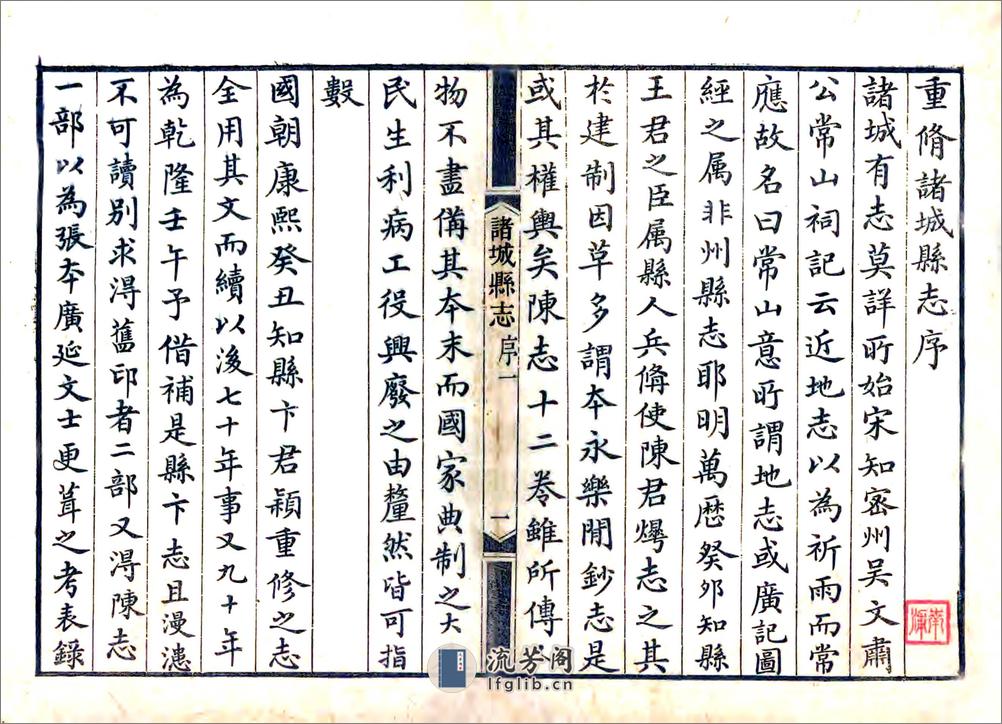 重脩諸城縣志序
諸城有志莫詳所始宋知密州吳文肅
公常山祠記云近地志以為祈雨而常
應故名曰常山意所謂地志或廣記圖
經之属非州縣志耶明萬歴癸夘知縣
王君之臣属縣人兵俻使陳君燁志之其
於建制因草多謂夲永樂閒鈔志是
或其權輿矣陳志十二卷雖所傳
諸城縣志 序一
一
物不盡備其夲末而國家典制之大
民生利病工役興廢之由釐然皆可指
數
國朝康熙癸丑知縣卞君颖重修之志
全用其文而續以後七十年事又九十年
為乾隆壬午予偕補是縣卞志且漫漶
不可讀别求淂舊印者二部又淂陳志
一部以為張夲廣延文士更葺之考表錄
流芳阁
lfglib.cn